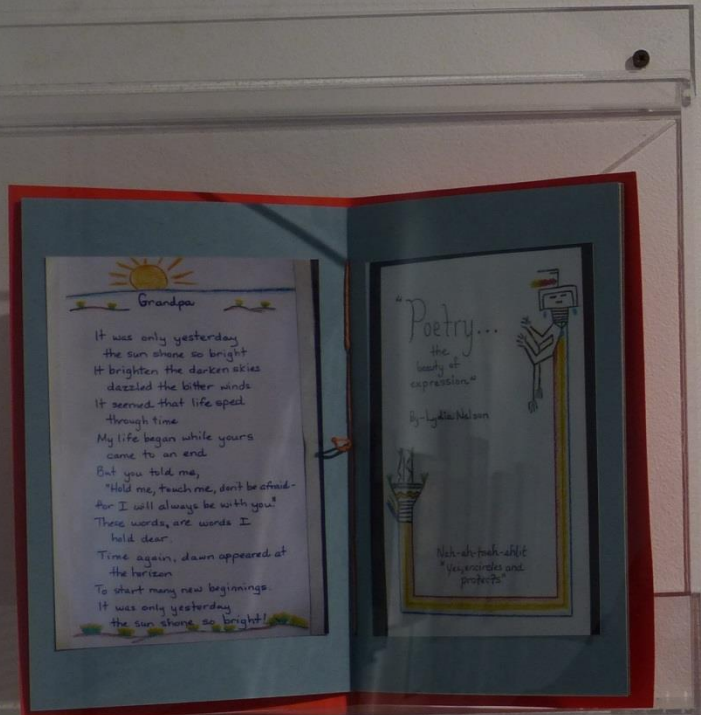 Grandpa
It was only yesterday
the sun shone so bright
It brighten the darken skies
dazzled the bitter winds
It seemed that life sped
through time
My life began while yours
came to an end
But you told me,
"Hold me, touch me, don't be afraid-
for I will always be with you."
These words, are words I
hold dear.
Time again, dawn appeared at
the horizon
To start many new beginnings.
It was only yesterday
the sun shone so bright!
"Poetry...
the
beauty of
expression."
By-Lydia Nelson
"Yea, encircles and
protects"